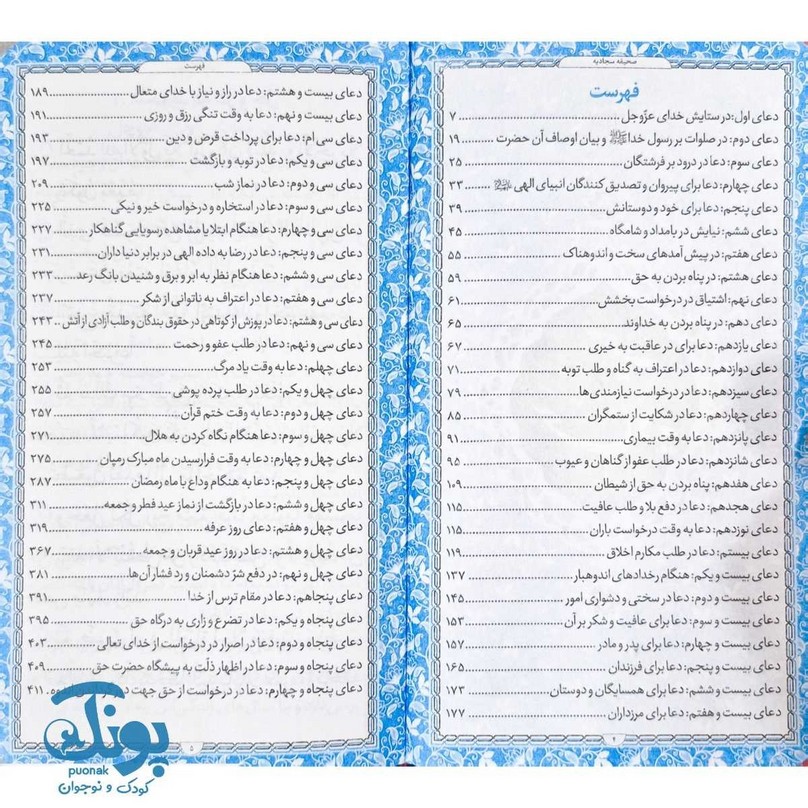 صحیفه سجادیه
فهرست
دعای اول: در ستایش خدای عزّوجل ۷
دعای دوم: در صلوات بر رسول خدا ﷺ و بیان اوصاف آن حضرت ۱۹
دعای سوم: دعا در درود بر فرشتگان ۲۵
دعای چهارم: دعا برای پیروان و تصدیق کنندگان انبیای الهی ۳۳
دعای پنجم: دعا برای خود و دوستانش ۳۹
دعای ششم: نیایش در بامداد و شامگاه ۴۵
دعای هفتم: در پیش آمدهای سخت و اندوهناک ۵۵
دعای هشتم: در پناه بردن به حق ۵۹
دعای نهم: اشتیاق در درخواست بخشش ۶۱
دعای دهم: در پناه بردن به خداوند ۶۵
دعای یازدهم: دعا برای در عاقبت به خیری ۶۷
دعای دوازدهم: دعا در اعتراف به گناه و طلب توبه ۷۱
دعای سیزدهم: دعا در درخواست نیازمندی‌ها ۷۹
دعای چهاردهم: دعا در شکایت از ستمگران ۸۵
دعای پانزدهم: دعا به وقت بیماری ۹۱
دعای شانزدهم: دعا در طلب عفو از گناهان و عیوب ۹۵
دعای هفدهم: پناه بردن به حق از شیطان ۱۰۹
دعای هجدهم: دعا در دفع بلا و طلب عافیت ۱۱۵
دعای نوزدهم: دعا به وقت درخواست باران ۱۱۵
دعای بیستم: دعا در طلب مکارم اخلاق ۱۱۹
دعای بیست و یکم: هنگام رخدادهای اندوهبار ۱۳۷
دعای بیست و دوم: دعا در سختی و دشواری امور ۱۴۵
دعای بیست و سوم: دعا برای عافیت و شکر بر آن ۱۵۳
دعای بیست و چهارم: دعا برای پدر و مادر ۱۵۷
دعای بیست و پنجم: دعا برای فرزندان ۱۶۵
دعای بیست و ششم: دعا برای همسایگان و دوستان ۱۷۳
دعای بیست و هفتم: دعا برای مرزداران ۱۷۷
۴
فهرست
دعای بیست و هشتم: دعا در راز و نیاز با خدای متعال ۱۸۹
دعای بیست و نهم: دعا به وقت تنگی رزق و روزی ۱۹۱
دعای سی ام: دعا برای پرداخت قرض و دین ۱۹۳
دعای سی و یکم: دعا در توبه و بازگشت ۱۹۷
دعای سی و دوم: دعا در نماز شب ۲۰۹
دعای سی و سوم: دعا در استخاره و درخواست خیر و نیکی ۲۲۵
دعای سی و چهارم: دعا هنگام ابتلا یا مشاهده رسوایی گناهکار ۲۲۷
دعای سی و پنجم: دعا در رضا به داده الهی در برابر دنیا داران ۲۳۱
دعای سی و ششم: دعا هنگام نظر به ابر و برق و شنیدن بانگ رعد ۲۳۳
دعای سی و هفتم: دعا در اعتراف به ناتوانی از شکر ۲۳۷
دعای سی و هشتم: دعا در پوزش از کوتاهی در حقوق بندگان و طلب آزادی از آتش ۲۴۳
دعای سی و نهم: دعا در طلب عفو و رحمت ۲۴۵
دعای چهلم: دعا به وقت یاد مرگ ۲۵۳
دعای چهل و یکم: دعا در طلب پرده پوشی ۲۵۵
دعای چهل و دوم: دعا به وقت ختم قرآن ۲۵۷
دعای چهل و سوم: دعا هنگام نگاه کردن به هلال ۲۷۱
دعای چهل و چهارم: دعا به وقت فرارسیدن ماه مبارک رمپان ۲۷۵
دعای چهل و پنجم: دعا به هنگام وداع با ماه رمضان ۲۸۷
دعای چهل و ششم: دعا در بازگشت از نماز عید فطر و جمعه ۳۱۱
دعای چهل و هفتم: دعای روز عرفه ۳۱۹
دعای چهل و هشتم: دعا در روز عید قربان و جمعه ۳۶۷
دعای چهل و نهم: در دفع شرّ دشمنان و رد فشار آن‌ها ۳۸۱
دعای پنجاهم: دعا در مقام ترس از خدا ۳۹۱
دعای پنجاه و یکم: دعا در تضرع و زاری به درگاه حق ۳۹۵
دعای پنجاه و دوم: دعا در اصرار در درخواست از خدای تعالی ۴۰۳
دعای پنجاه و سوم: دعا در اظهار ذلّت به پیشگاه حضرت حق ۴۰۹
دعای پنجاه و چهارم: دعا در درخواست از حق جهت اندوه ۴۱۱
۵
پونک
puonak
کودک و نوجوان